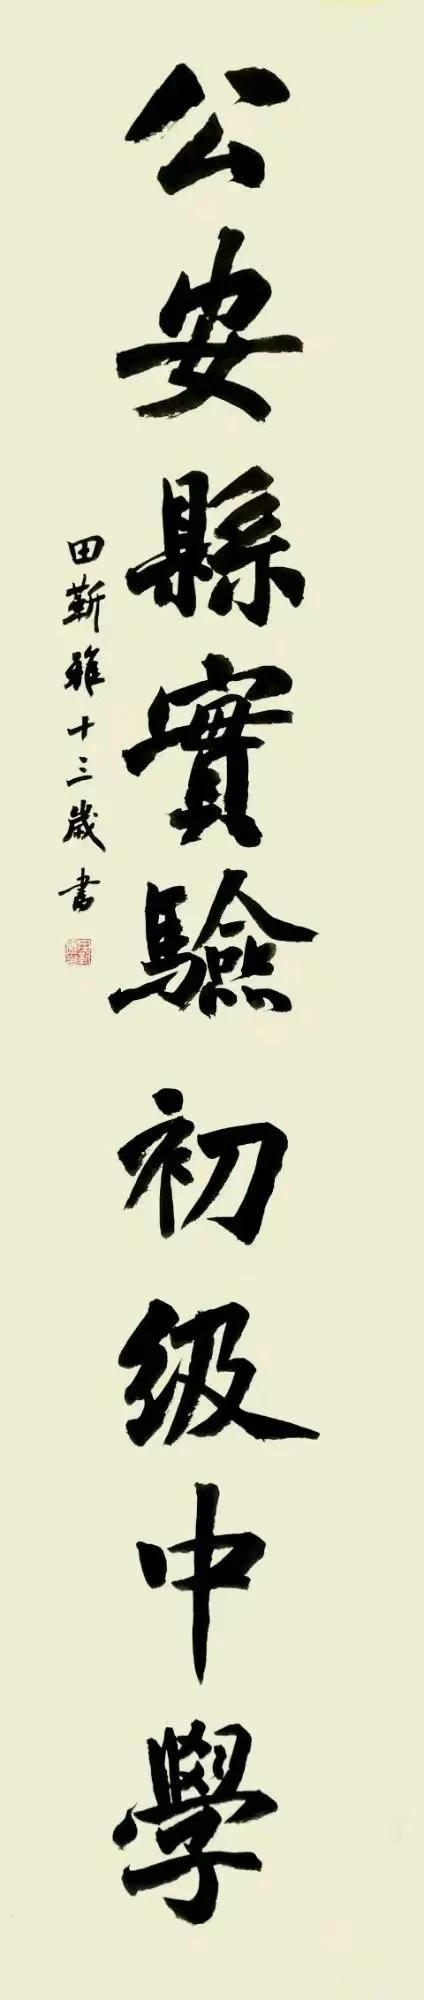 公安縣實驗初级中學
田靳雅十三歲書